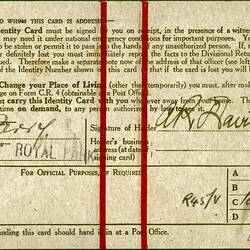 TO WHOM THIS CARD IS ADDRESSED—
Identity Card must be signed by you on receipt, in the presence of a witness
may need it under national emergency conditions for important purposes. You
to be stolen or permit it to pass into the hands of any unauthorized person. If,
definitely lost you must immediately report the facts to the Divisional Return
issued. Therefore make a separate note now of the address of that officer (indi
of the Identity Number shown on this card) so that if the card is lost you will
Change your Place of Living (other than temporarily) you must, after making
on Form C.R. 4 (obtainable at a Post Office).
must carry this Identity Card with you whenever away from your home. The
time on demand, to any person authorized by law to see it.
Signature of Holder
Holder's business
address (at date
signing card)
ROYAL PARK
FOR OFFICIAL PURPOSES, IF REQUIRED
A
B
C
D
R45/V
nding this card should hand it in at a Post Office.